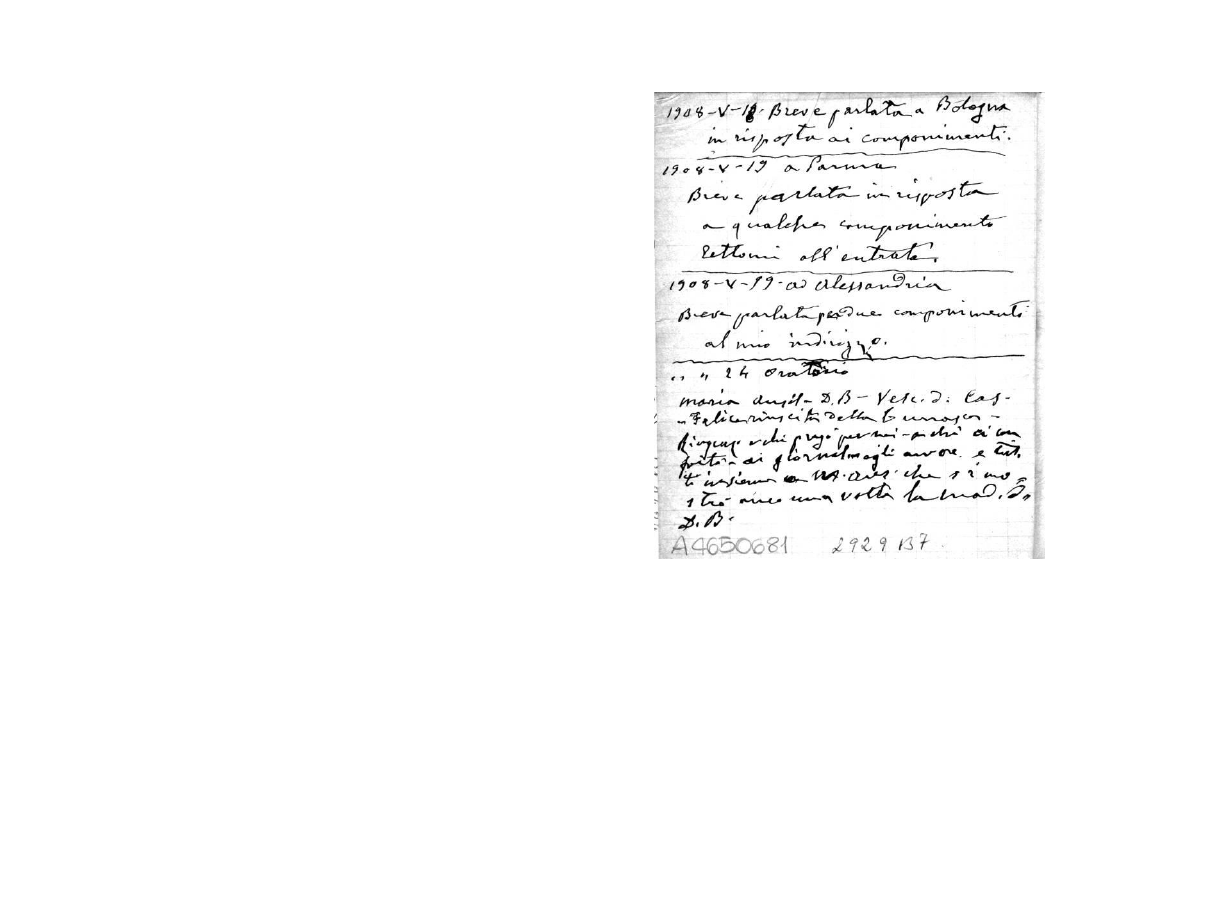 1908-V-18. Breve parlata a Bologna
in risposta ai componimenti.
1908-V-19 a Parma
Breve parlata in risposta
a qualche componimento
lettomi all'entrata.
1908-V-19-ad Alessandria
Breve parlata per due componimenti
al mio indirizzo.
" " 24 Oratorio
Maria Ausil- D.B- Vesc. di Cas-
-Felice riuscita della
per noi-
e tut.
ti insieme a M. Aus. che si mo=
strò anco una volta la Mad. di
D. B.
A4650681 2929 B7